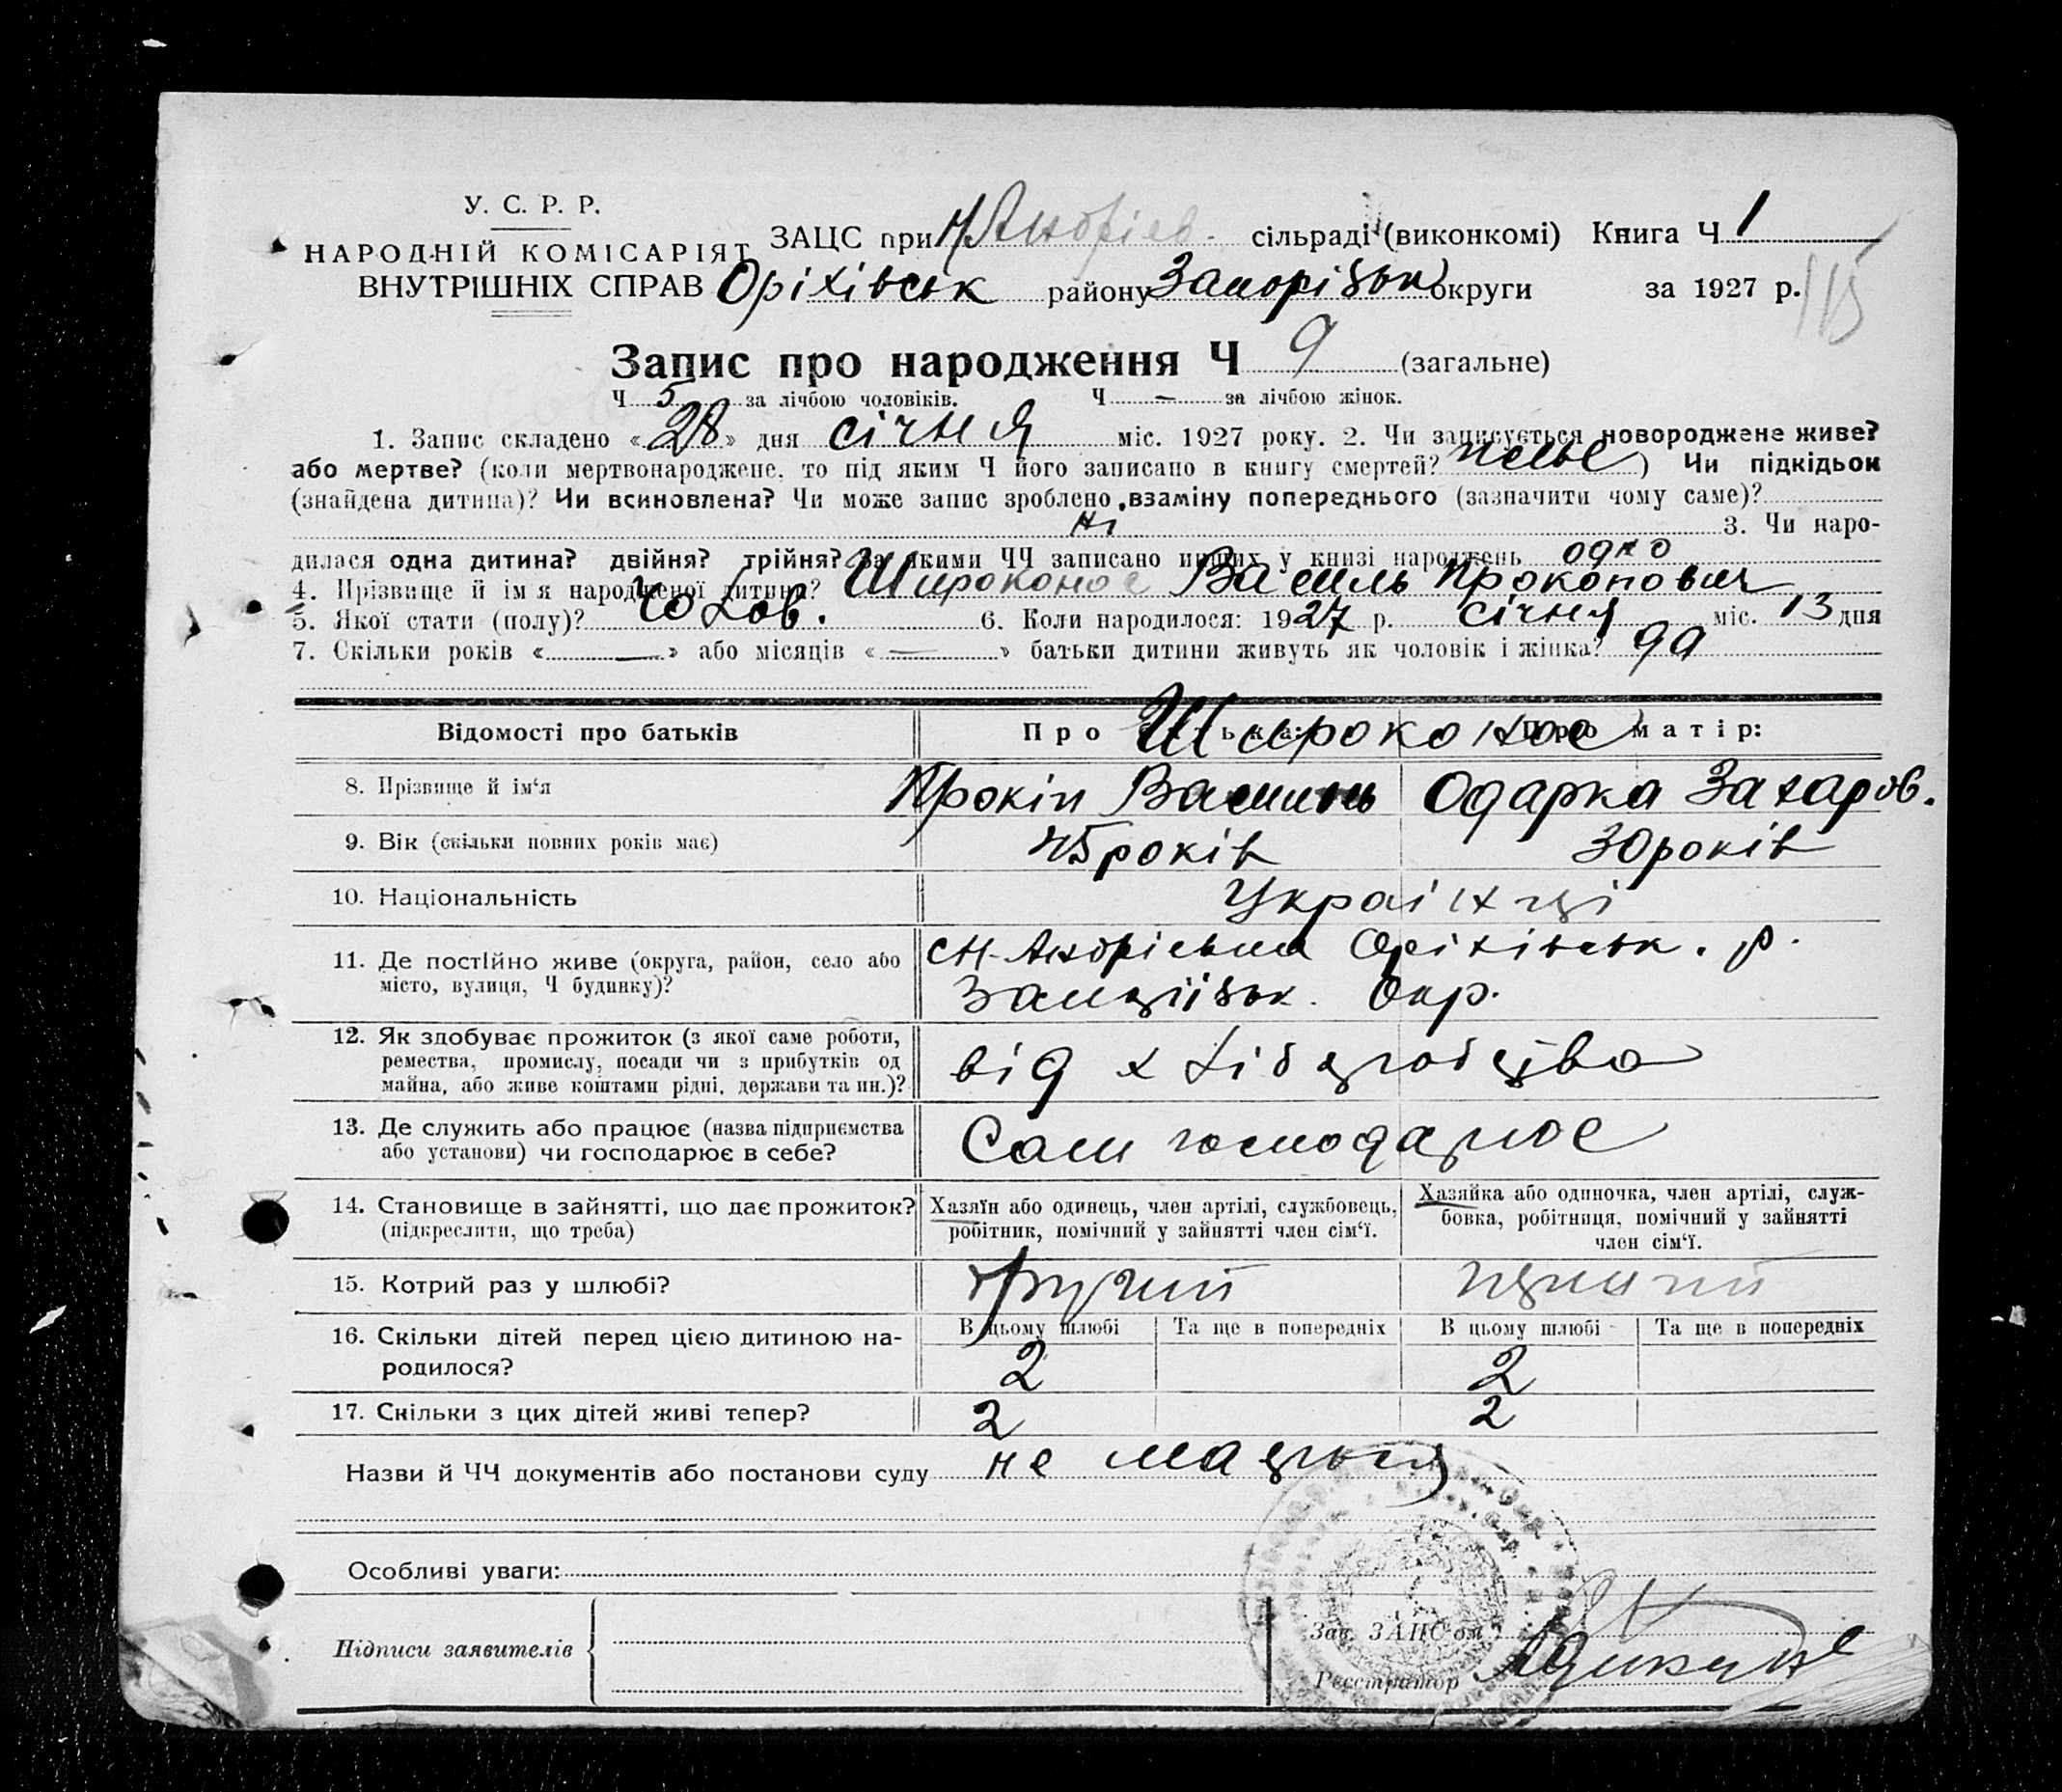 У. С. Р. Р.
НАРОДНІЙ КОМІСАРІЯТ
ВНУТРІШНІХ СПРАВ
ЗАЦС при Н Андрієв. сільраді (виконкомі) Книга Ч 1
Оріхівськ району Запорізьк округи за 1927 р.
115
Запис про народження Ч 9 (загальне)
Ч 5 за лічбою чоловіків. Ч — за лічбою жінок.
1. Запис складено «28» дня січня міс. 1927 року. 2. Чи записується новороджене живе?
або мертве? (коли мертвонароджене, то під яким Ч його записано в книгу смертей? живе) Чи підкідьок
(знайдена дитина)? Чи всиновлена? Чи може запис зроблено взаміну попереднього (зазначити чому саме)?
ні 3. Чи наро-
дилася одна дитина? двійня? трійня? За якими ЧЧ записано инших у книзі народжень одно
4. Прізвище й ім'я народженої дитини? Широконос Василь Прокопович
5. Якої стати (полу)? Чолов. 6. Коли народилося: 1927 р. січня міс. 13 дня
7. Скільки років «—» або місяців «—» батьки дитини живуть як чоловік і жінка? 9
Відомості про батьків Про батька: Про матір:
Широконос
8. Прізвище й ім'я Прокіп Василь Одарка Захаров.
9. Вік (скільки повних років має) 45 років 30 років
10. Національність Українці
11. Де постійно живе (округа, район, село або с Н-Андрієвка Оріхівськ. р.
місто, вулиця, Ч будинку)? Запоріїзьк. Окр.
12. Як здобуває прожиток (з якої саме роботи,
ремества, промислу, посади чи з прибутків од від хліборобства
майна, або живе коштами рідні, держави та ин.)?
13. Де служить або працює (назва підприємства Сам господарює
або установи) чи господарює в себе?
14. Становище в зайнятті, що дає прожиток? Хазяїн або одинець, член артілі, службовець, Хазяйка або одиночка, член артілі, служ-
(підкреслити, що треба) робітник, помічний у зайнятті член сім'ї. бовка, робітниця, помічний у зайнятті
член сім'ї.
15. Котрий раз у шлюбі?
В цьому шлюбі Та ще в попередніх В цьому шлюбі Та ще в попередніх
16. Скільки дітей перед цією дитиною на-
родилося? 2 2
17. Скільки з цих дітей живі тепер? 2 2
Назви й ЧЧ документів або постанови суду не мається
Особливі уваги:
Підписи заявителів
Зав. ЗАЦС'ом
Реєстратор